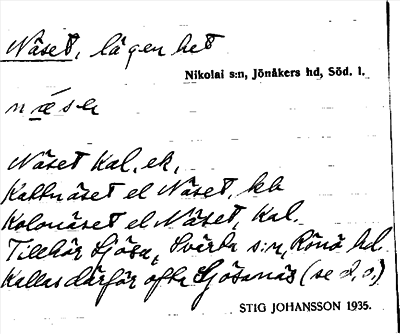 Näset, lägenhet
Nikolai s:n, Jönåkers hd, Söd. l.
næ´sɘ
Näset Kal, ek,
Kattnäset el Näset, hb
Kolonäset el Näset, Kal.
Tillhör Sjösa, Svärta s:n, Rönö hd.
Kallas därför ofta Sjösanäs (se d. o.)
STIG JOHANSSON 1935.